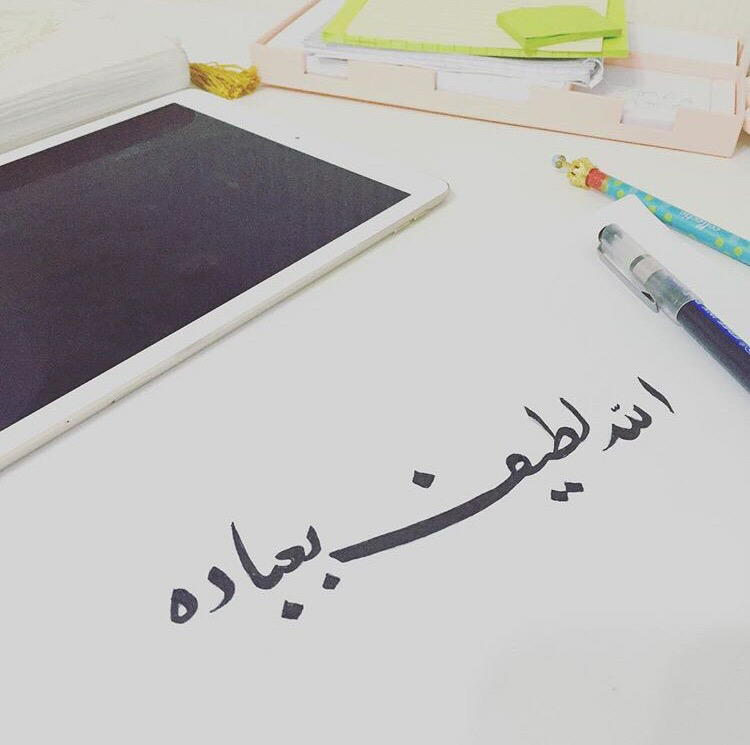 الله لطيف بعباده